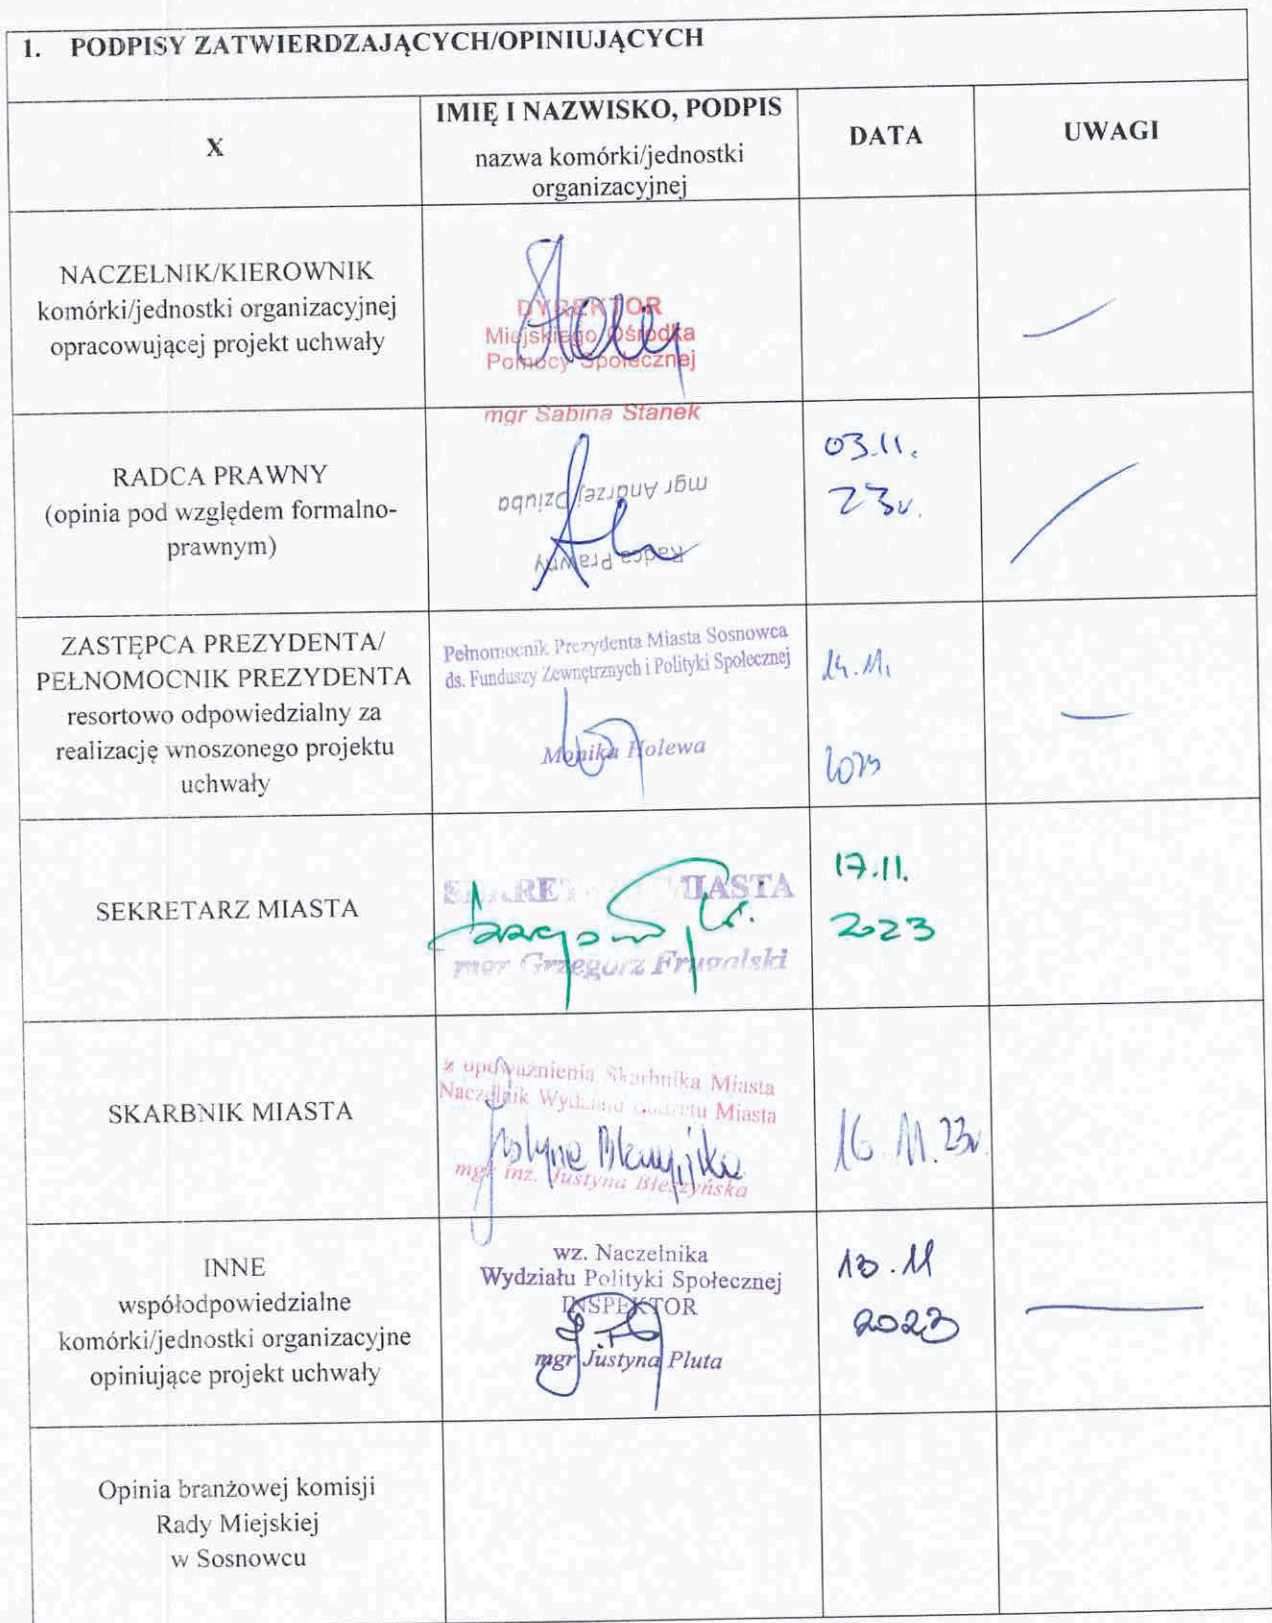 1. PODPISY ZATWIERDZAJĄCYCH/OPINIUJĄCYCH
X
IMIĘ I NAZWISKO, PODPIS
nazwa komórki/jednostki
organizacyjnej
DATA
UWAGI
NACZELNIK/KIEROWNIK
komórki/jednostki organizacyjnej
opracowującej projekt uchwały
DYREKTOR
Miejskiego Ośrodka
Pomocy Społecznej
mgr Sabina Stanek
RADCA PRAWNY
(opinia pod względem formalno-
prawnym)
Radca Prawny
mgr Andrzej Dziuba
03.11.
23r.
ZASTĘPCA PREZYDENTA/
PEŁNOMOCNIK PREZYDENTA
resortowo odpowiedzialny za
realizację wnoszonego projektu
uchwały
Pełnomocnik Prezydenta Miasta Sosnowca
ds. Funduszy Zewnętrznych i Polityki Społecznej
Monika Holewa
14.11.
2023
SEKRETARZ MIASTA
MIASTA
mgr Grzegorz Frugalski
17.11.
2023
SKARBNIK MIASTA
z upoważnienia Skarbnika Miasta
Naczelnik Wydziału Budżetu Miasta
mgr inż. Justyna
16.11.23r
INNE
współodpowiedzialne
komórki/jednostki organizacyjne
opiniujące projekt uchwały
wz. Naczelnika
Wydziału Polityki Społecznej
INSPEKTOR
mgr Justyna Pluta
13.11
2023
Opinia branżowej komisji
Rady Miejskiej
w Sosnowcu